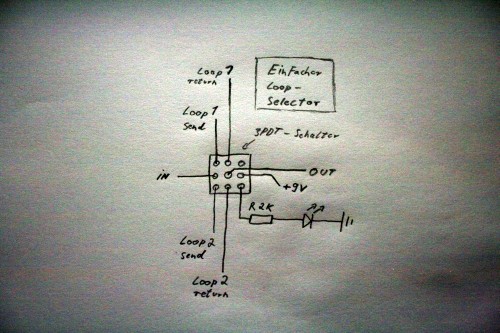 Loop 1
return
Einfacher
Loop-
Selector
Loop 1
send
3PDT-Schalter
iN
OUT
+9V
R2K
Loop 2
send
Loop 2
return